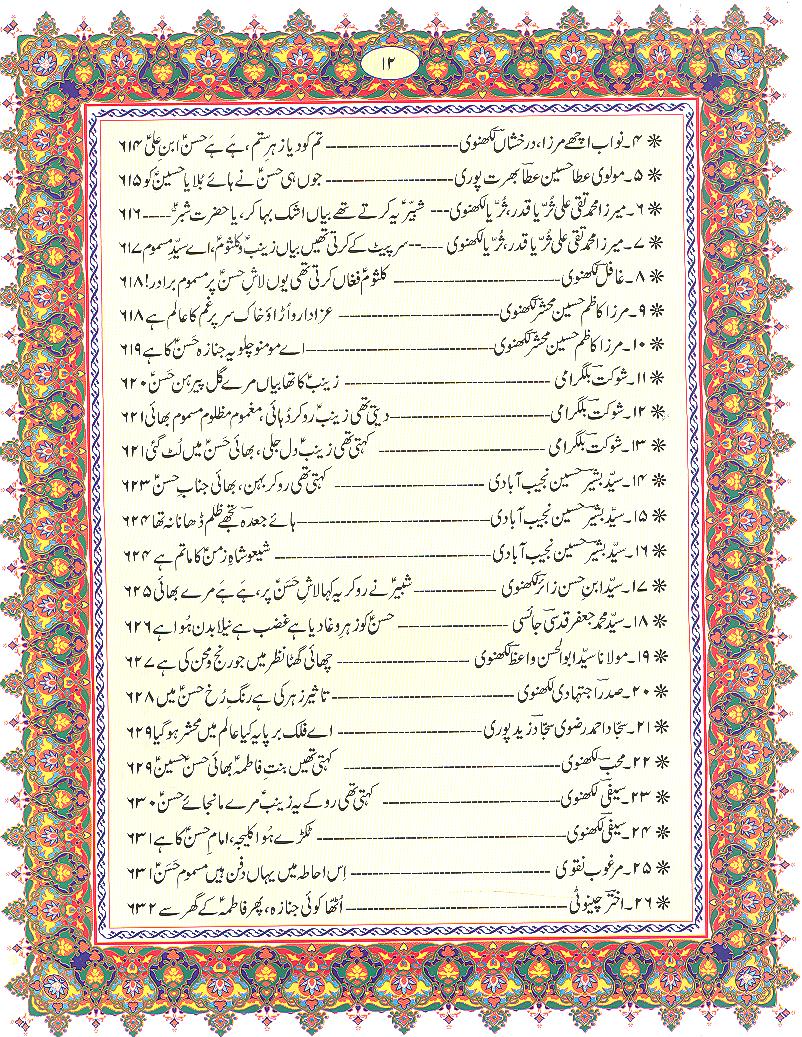 ۱۲
❋ ۴۔نواب اچھے مرزا، درخشاںؔ لکھنوی------------------ تم کو دیا زہرِ ستم، ہے ہے حسنؑ ابنِ علیؑ ۶۱۴
❋ ۵۔مولوی عطا حسین عطاؔ بھرت پوری------------------ جوں ہی حسنؑ نے ہائے بُلایا حسینؑ کو ۶۱۵
❋ ۶۔میرزا محمد تقی علی ثُریّا قدر، ثُریّا لکھنوی--- شبیرؑ یہ کرتے تھے بیاں اشک بہا کر، یا حضرت شبرؑ---- ۶۱۶
❋ ۷۔میرزا محمد تقی علی ثُریّا قدر، ثُریّا لکھنوی -----سر پیٹ کے کرتی تھیں بیاں زینبؑ و کلثومؑ، اے سیّدِ مسموم ۶۱۷
❋ ۸۔غافلؔ لکھنوی------------------ کلثومؑ فغاں کرتی تھی یوں لاشِ حسنؑ پر مسموم برادر! ۶۱۸
❋ ۹۔مرزا کاظم حسین محشرؔ لکھنوی------------------ عزادارو اُڑاؤ خاک سر پر غم کا عالم ہے ۶۱۸
❋ ۱۰۔مرزا کاظم حسین محشرؔ لکھنوی------------------اے مومنو چلو یہ جنازہ حسنؑ کا ہے ۶۱۹
❋ ۱۱۔شوکتؔ بلگرامی ------------------ زینبؑ کا تھا بیاں مرے گل پیرہن حسنؑ ۶۲۰
❋ ۱۲۔شوکتؔ بلگرامی------------------دیتی تھی زینبؑ رو کر دُہائی، مغموم مظلوم مسموم بھائی ۶۲۱
❋ ۱۳۔شوکتؔ بلگرامی ------------------ کہتی تھی زینبؑ دل جلی، بھائی حسنؑ میں لُٹ گئی ۶۲۱
❋ ۱۴۔سیّد بشیر حسین نجیب آبادی------------------ کہتی تھی رو کر بہن، بھائی جناب حسنؑ ۶۲۳
❋ ۱۵۔سیّد بشیر حسین نجیب آبادی------------------ہائے جعدہ تجھے ظلم ڈھانا نہ تھا ۶۲۴
❋ ۱۶۔سیّد بشیر حسین نجیب آبادی------------------ شیعو شاہِ زمنؑ کا ماتم ہے ۶۲۴
❋ ۱۷۔سیّد ابنِ حسن زائرؔ لکھنوی ------------------شبیرؑ نے رو کر یہ کہا لاشِ حسنؑ پر، ہے ہے مرے بھائی ۶۲۵
❋ ۱۸۔سیّد محمد جعفر قدسیؔ جائسی------------------ حسنؑ کو زہرِ دغا دیا ہے غضب ہے نیلا بدن ہوا ہے ۶۲۶
❋ ۱۹۔مولانا سیّد ابوالحسن واعظؔ لکھنوی ------------------ چھائی گھٹا نظر میں جو رنج و محن کی ہے ۶۲۷
❋ ۲۰۔صدرؔ اجتہادی لکھنوی ------------------ تاثیر زہر کی ہے رنگِ رُخِ حسنؑ میں ۶۲۸
❋ ۲۱۔سجّاد احمد رضوی سجّادؔ زید پوری------------------ اے فلک برپا یہ کیا عالم میں محشر ہوگیا ۶۲۹
❋ ۲۲۔محبؔ لکھنوی------------------ کہتی تھیں بنت فاطمہؑ بھائی حسنؑ حسینؑ ۶۲۹
❋ ۲۳۔سیفیؔ لکھنوی------------------ کہتی تھی رو کے یہ زینبؑ مرے مانجائے حسنؑ ۶۳۰
❋ ۲۴۔سیفیؔ لکھنوی------------------ ٹکڑے ہُوا کلیجہ، امام حسنؑ کا ہے ۶۳۱
❋ ۲۵۔مرغوب نقوی ------------------ اِس احاطہ میں یہاں دفن ہیں مسموم حَسَنؑ ۶۳۱
❋ ۲۶۔اخترؔ چینوٹی------------------ اُٹھا کوئی جنازہ، پھر فاطمہؑ کے گھر سے ۶۳۲